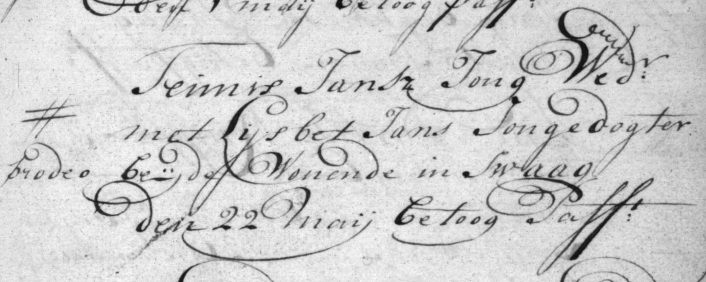 den 1 maij betoog Pass:
Teimis Jansz Jong Wedr:
met Lijsbet Jans Jongedogter
prodeo beijde Wonende in Swaag
den 22 maij betoog Pass: